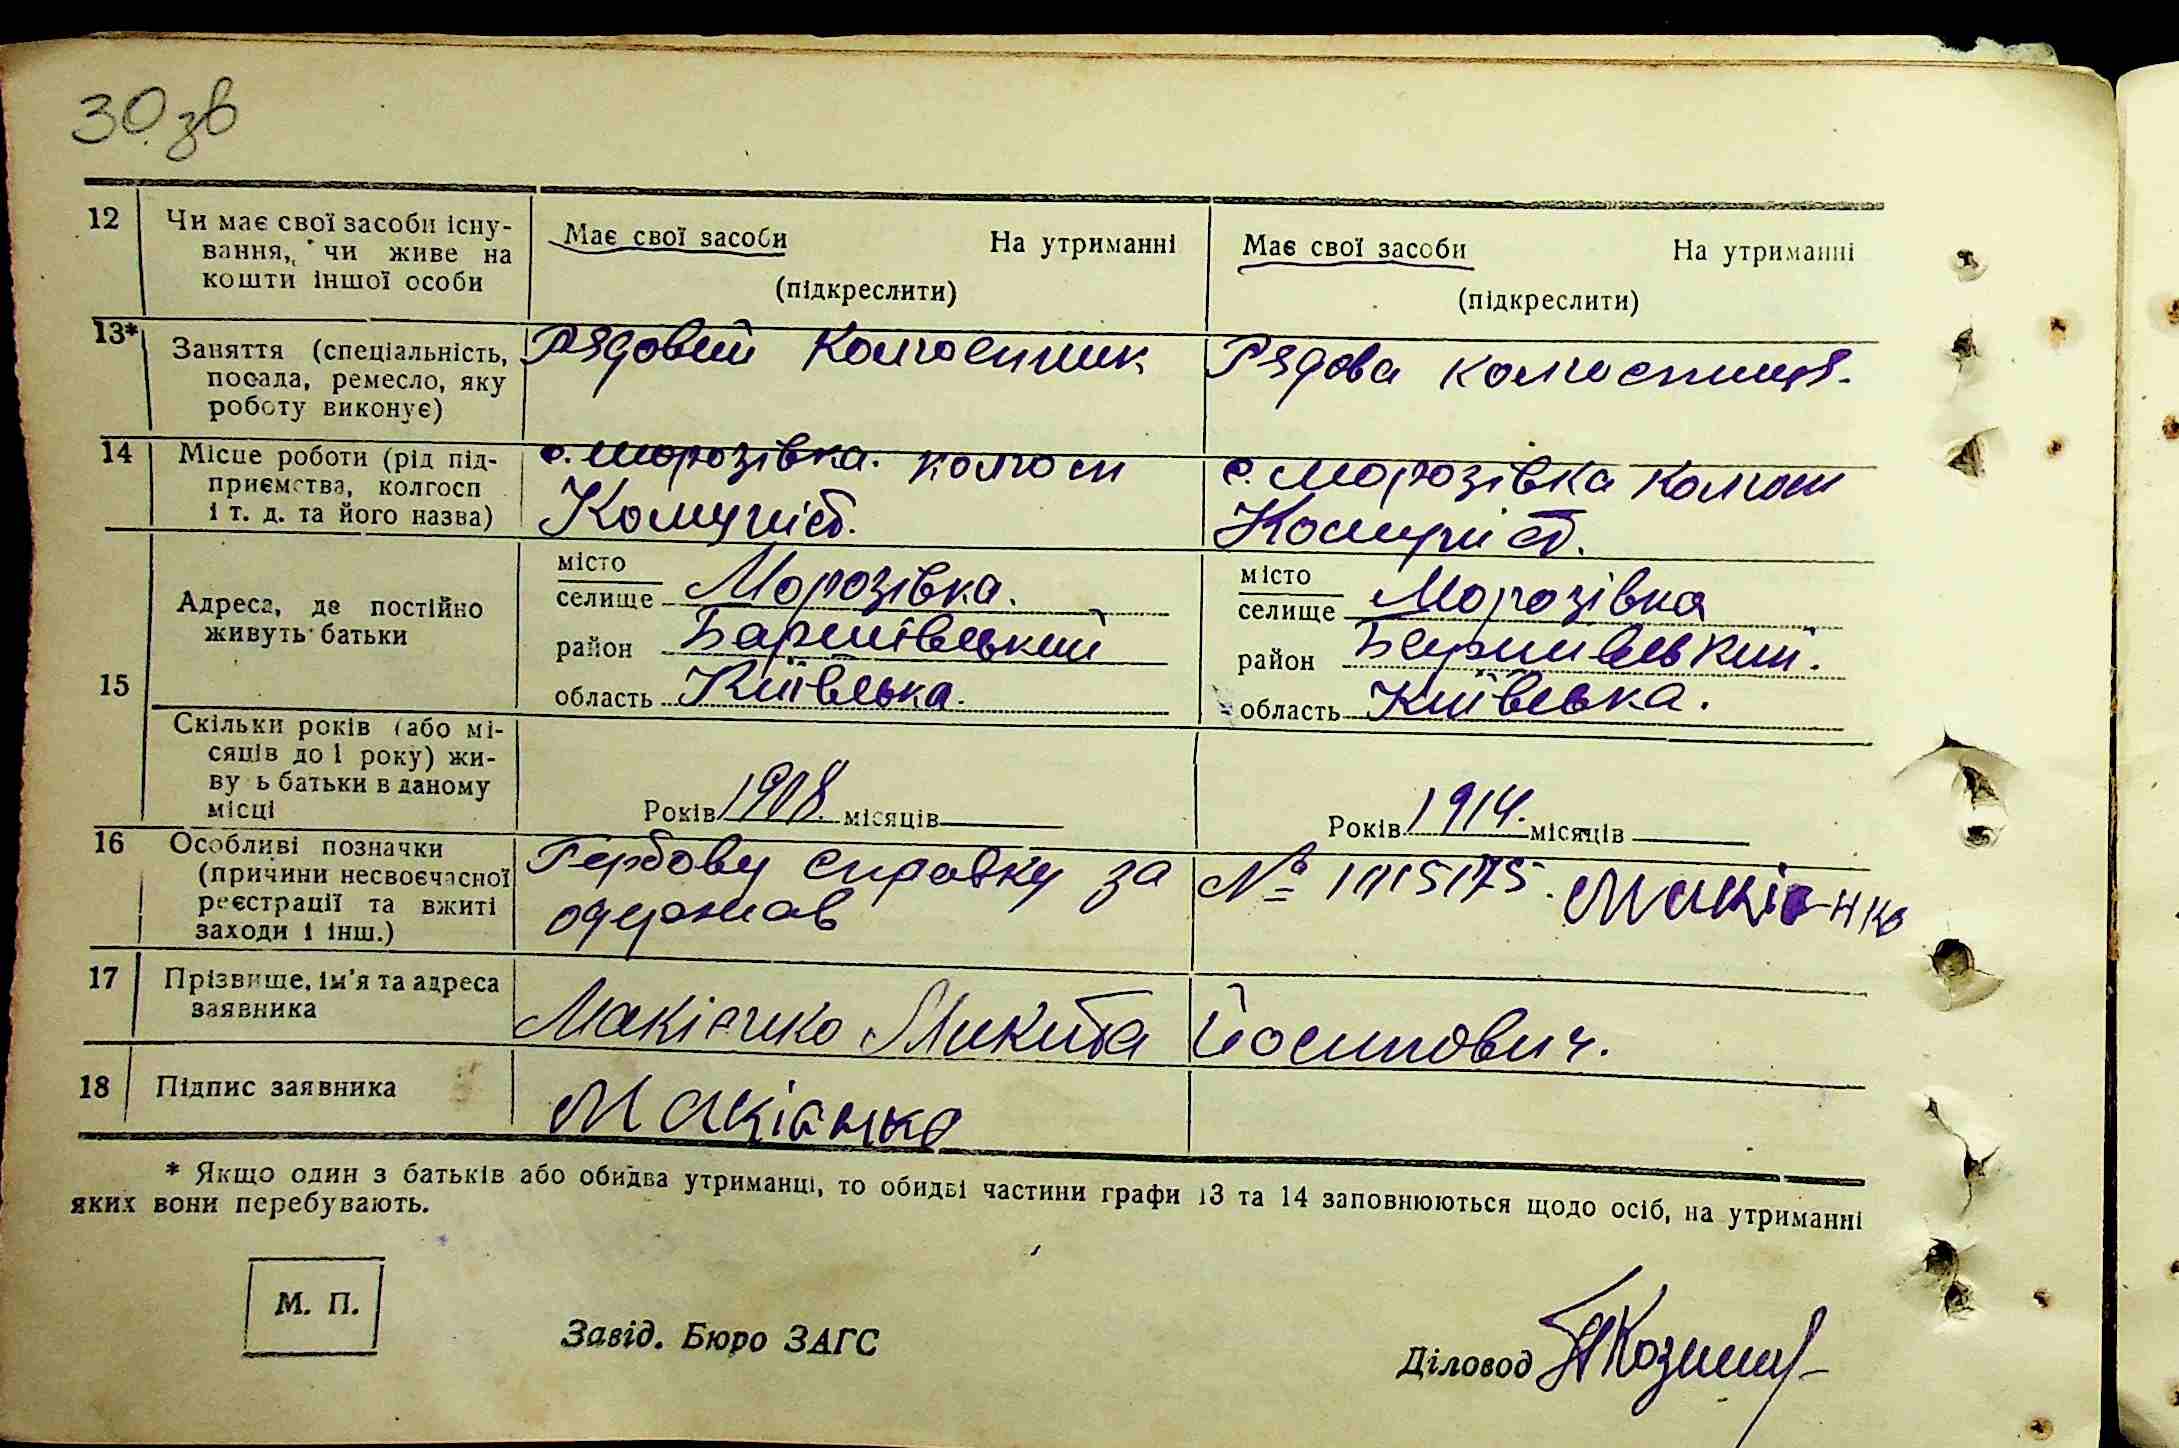 30 зв
12 Чи має свої засоби існу-
вання, чи живе на
кошти іншої особи
Має свої засоби На утриманні
(підкреслити)
Має свої засоби На утриманні
(підкреслити)
13* Заняття (спеціальність,
посада, ремесло, яку
роботу виконує)
Рядовий колгоспник
Рядова колгоспниця.
14 Місце роботи (рід під-
приємства, колгосп
і т. д. та його назва)
с. Морозівка. колгосп
Комуніст.
с. Морозівка колгосп
Комуніст.
15 Адреса, де постійно
живуть батьки
місто
селище Морозівка.
район Баришівський
область Київська.
місто
селище Морозівка
район Баришівський.
область Київська.
Скільки років (або мі-
сяців до 1 року) жи-
ву ь батьки в даному
місці
Років 1908. місяців
Років 1914. місяців
16 Особливі позначки
(причини несвоєчасної
реєстрації та вжиті
заходи і інш.)
Гербову справку за № 1115175.
одержав Макіянко
17 Прізвище, ім'я та адреса
заявника
Макіянко Микита Йосипович.
18 Підпис заявника
Макіянко
* Якщо один з батьків або обидва утриманці, то обидві частини графи 13 та 14 заповнюються щодо осіб, на утриманні
яких вони перебувають.
М. П.
Завід. Бюро ЗАГС
Діловод